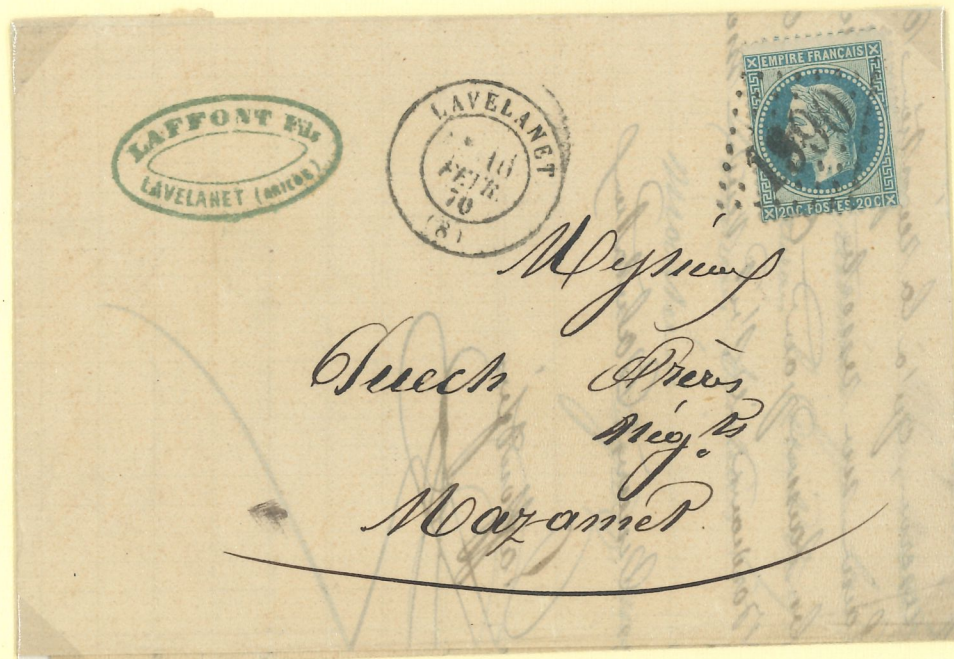 LAFFONT Fils
LAVELANET (ARIEGE)
LAVELANET
16
FEVR.
70
(8)
EMPIRE FRANÇAIS
1990
20C POSTES 20C
Messieurs
Puech Frères
Négts
Mazamet